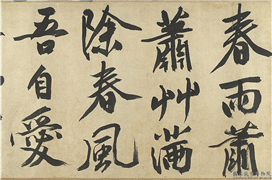 春雨蕭
蕭艸滿
除春風
吾自愛